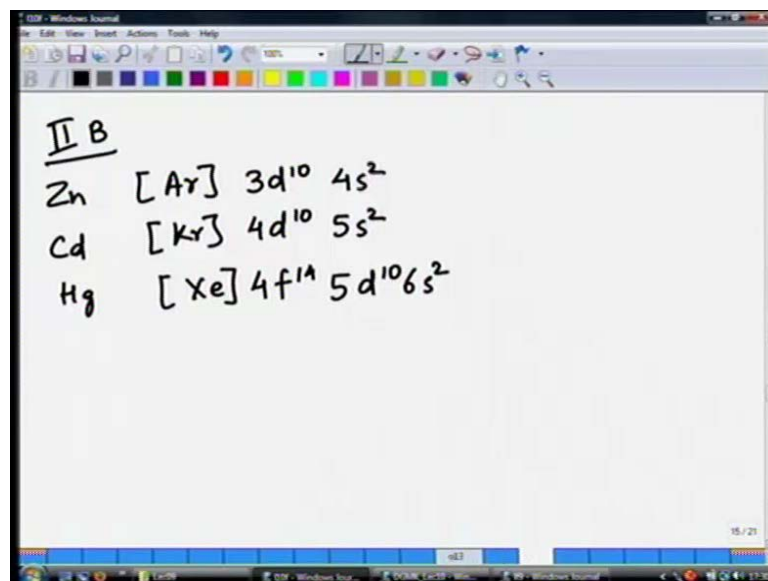 - Windows Journal
Edit View Insert Actions Tools Help
100%
II B
Zn [Ar] 3d¹⁰ 4s²
Cd [Kr] 4d¹⁰ 5s²
Hg [Xe] 4f¹⁴ 5d¹⁰ 6s²
15/21